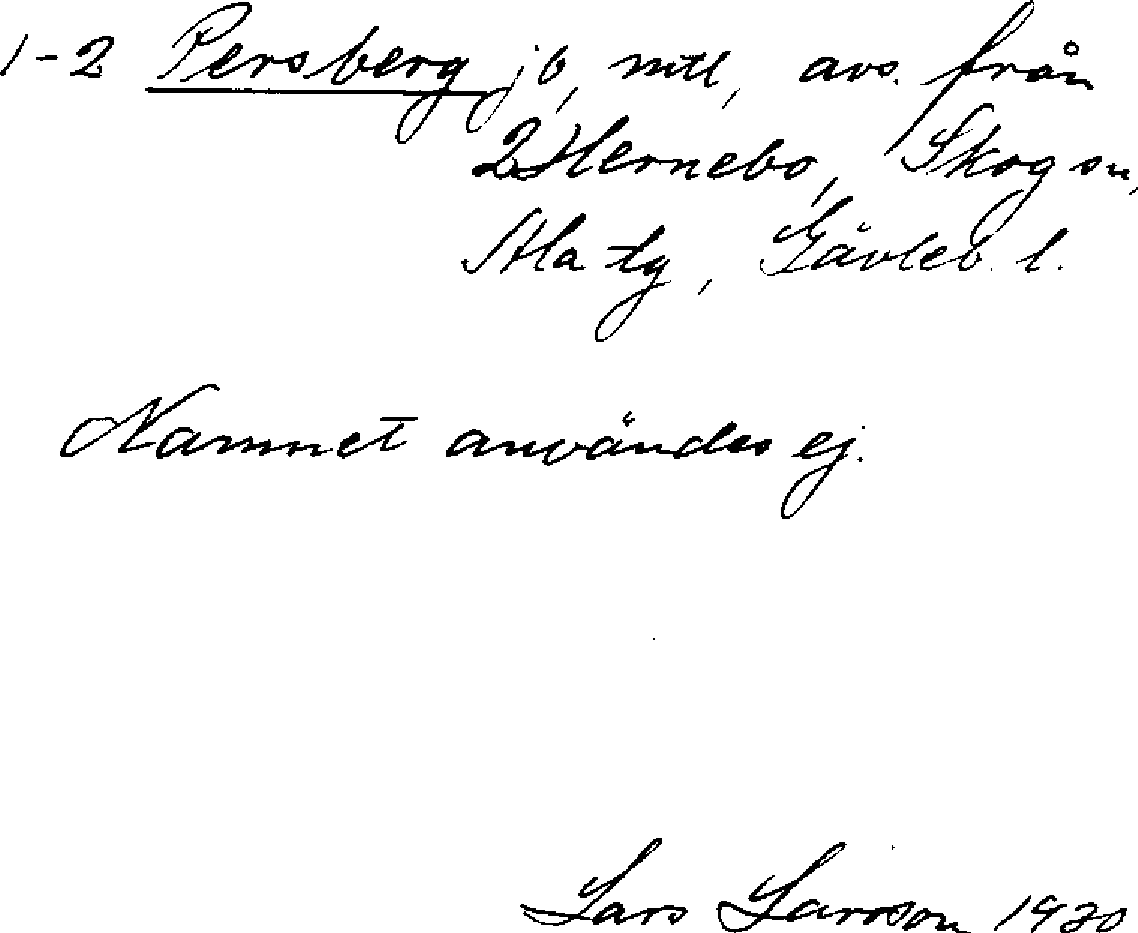 1-2 Persberg jb, mtl, avs. från
2 Hernebo, Skog sn,
Ala tg, Gävleb. l.
Namnet användes ej.
Lars Larsson 1930